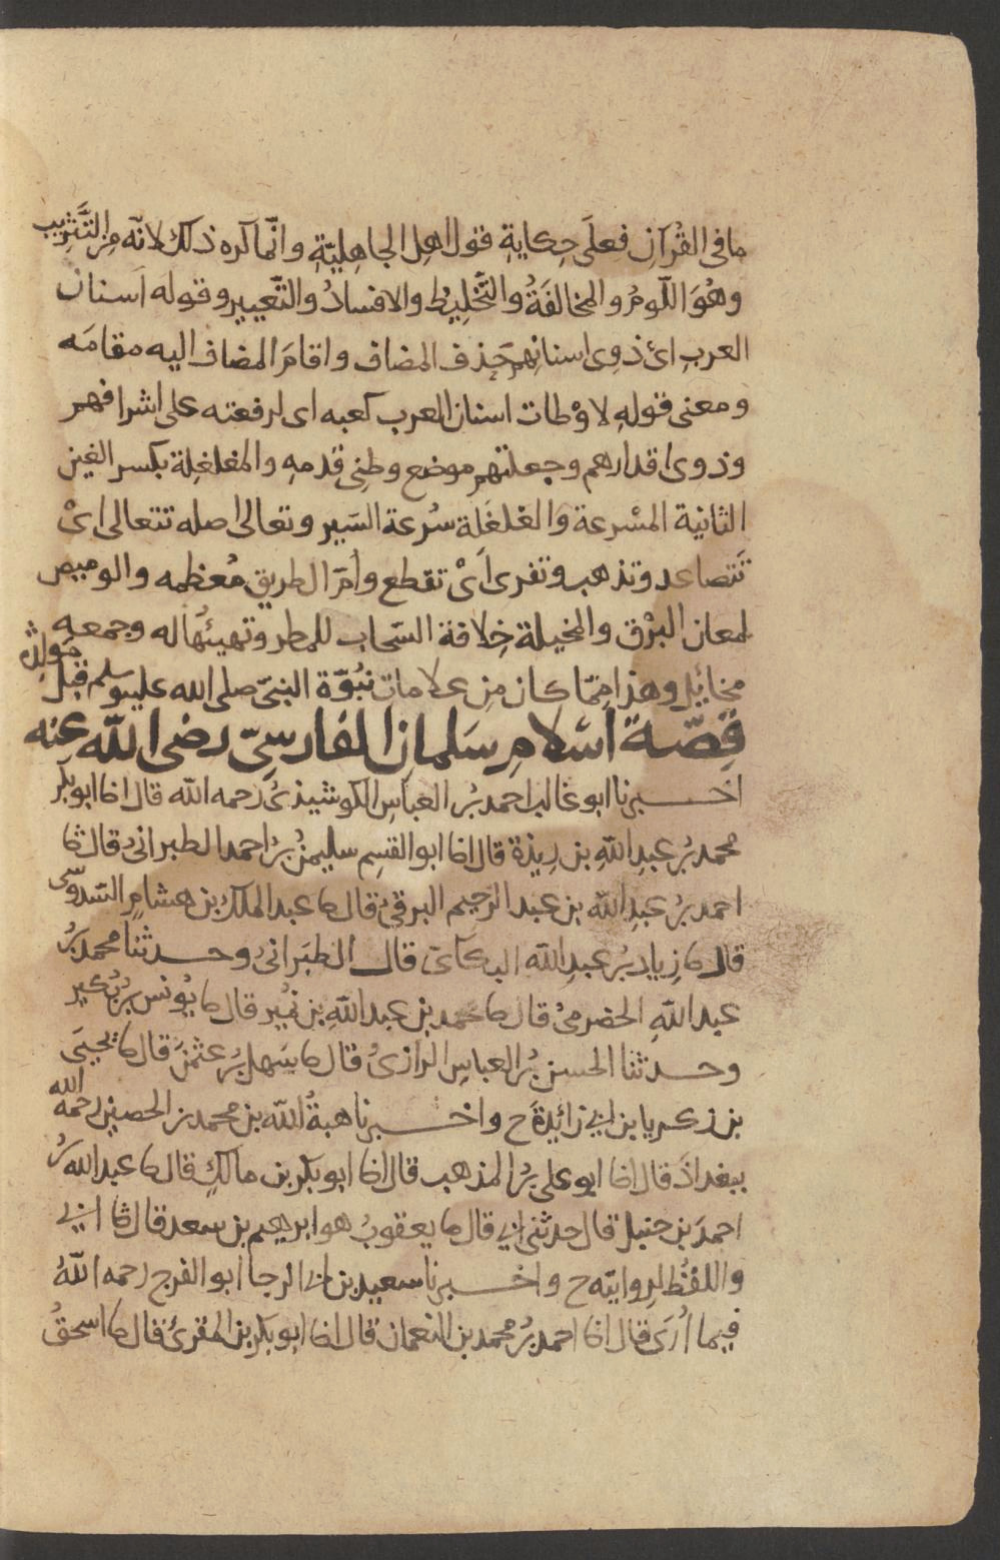 ما في القُرآنِ فعلَى حِكايةِ قول اهل الجاهِليّةِ وانّما كره ذلك لانّه مِن التَّثرِيب
وهُوَ اللّومُ والمخالفَةُ والتَّخلِيطُ والافسادُ والتّعيير وقوله اَسنان
العربِ ائ ذوِى اسنانِهِم حَذف المضاف واقامَ المضاف اليه مقامَه
ومعنى قولهِ لاوْطات اسنان العرب كعبه اى لرفعته على اشرافهم
وذوى اقدارهم وجعلتهم موضع وطئِ قدمهِ والمغلغِلة بكسر الغين
الثانية المسْرعة والغلغَلة سُرعة السَير وتعالى اصله تتعالى اىْ
تَتصاعد وتذهب وتفرى اَىْ تقطع واَمّ الطريق مُعظمه والوميض
لمعان البرْق والمخيلة خِلاقة السّحاب للمطر وتهيئُها له وجمعه
مخايُل وهذا مِمّا كان مِن علامات نبُوّة النبىّ صلى الله عليه وسلم قبل مَولِدِه
قِصّة اسْلامِ سَلمان الفارِسِىّ رضى اللّه عنه
اخــبرنا ابو غالب احمد بُن العباسِ الكوشيذىُ رحمه الله قال انا ابو بكر
محمد بُن عبدِ اللّهِ بن رِيذة قال انا ابو القسِم سليمنُ بُن احمد الطبرانىُ قال ثا
احمد بُن عبدِ اللّه بن عبد الرّحيم البرقىُ قال ثا عبد الملك بن هشامٍ السّدوسى
قال ثا زِياد بُن عبدِ اللّه البكّائى قال الطبَرانىُ وحــدثنا محمد بُن
عبدِ اللّهِ الحضرمىُ قال ثا محمد بن عبد اللّهِ بن نُمير قال ثا يُونس بُن بُكير
وحــدثنا الحسن بُن العباسِ الرازىُ قال ثا سَهل بُن عثمنَ قال ثا يحيَى
بن زكريا بن ابى زائِدةَ ح واخــبرنا هبةُ اللّه بن محمد بن الحصين رحمه الله
ببغداذَ قال انا ابو على بُن المذهب قال انا ابو بكر بن مالكٍ قال ثا عبد الله بُن
احمدَ بن حنبل قال حدثنى ابى قال ثا يعقوبُ هو ابن ابرهيم بن سعد قال ثا ابى
واللفْظ لِروايتِه ح واخــبرنا سعيد بن ابى الرجا ابو الفرج رحمه اللّهُ
فيما اُرَى قال انا احمد بُن محمد بن النعمان قال انا ابو بكر بن المقرئُ قال ثا اسحقُ